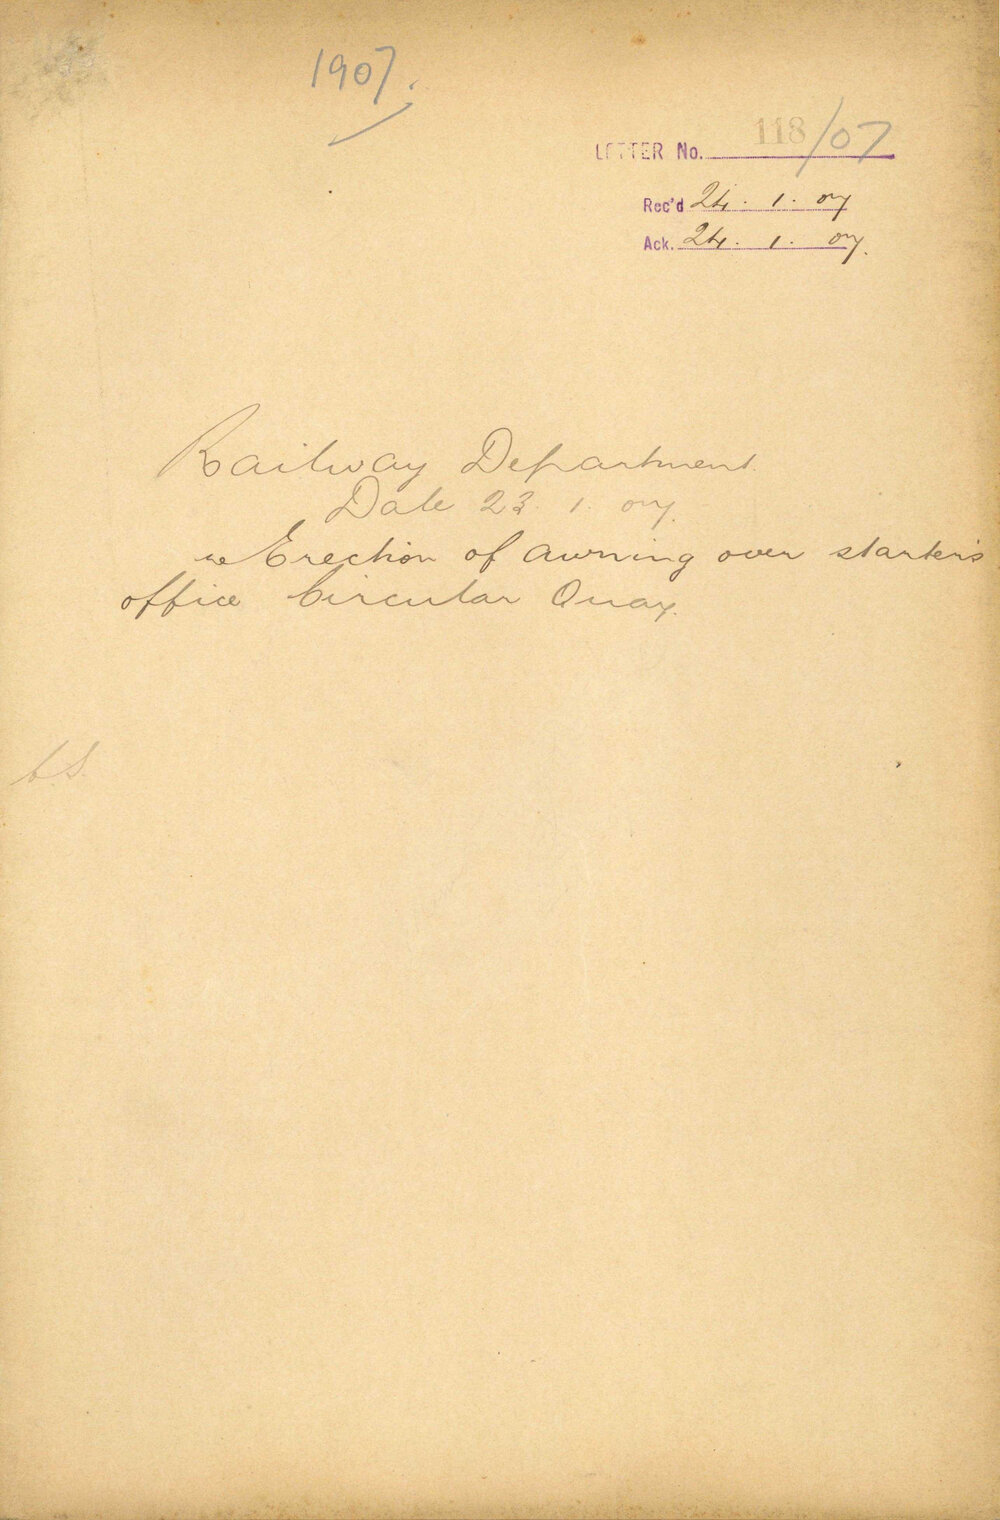 1907.
LETTER No. 118/07
Rec'd 24. 1. 07
Ack. 24. 1. 07.
Railway Department.
Date 23. 1. 07.
re Erection of awning over starter's
office Circular Quay.